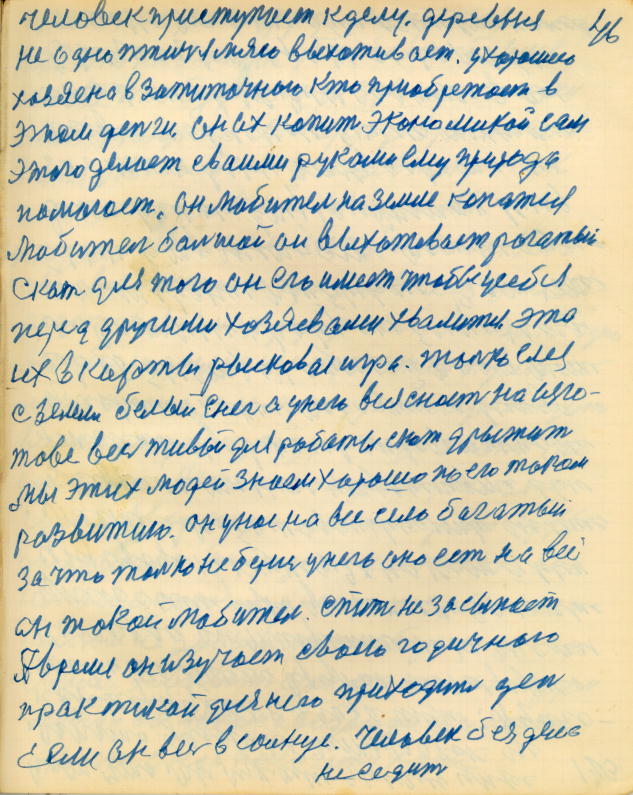 46
человек приступает к делу. деревня
не одно птицу и мясо выхотивает. у хорошего
хозяена в затиточного кто приобретает в
этом денги. он их копит экономикой сам
этого делает сваими руками ему природа
помогает. он любител на земле копатся
любител балшой он выхотевает рогатый
скот для того он его имеет чтобы уебя
перед другими хозяевами хвалится. эта
их в карты рысковая игра. толко слез
с земли белый снег а у него вся снаст на изго-
тове весь тивый для работы скот дрытит
мы этих людей знаем хорошо по его таком
развитию. он у нас на все село багатый
за что толко не бериш у него оно ест на все
он такой любител. спит не засыпает
А время он изучает своего годичного
практикой для него приходит ден
если он вес в солнце. человек без дело
не седит